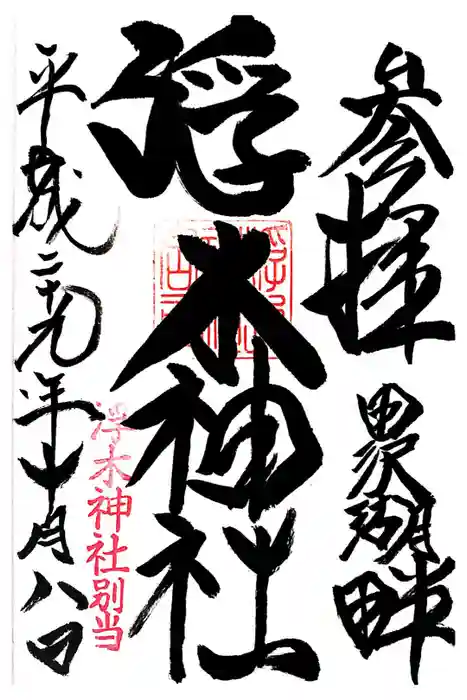 参拝 田沢湖畔
浮木神社
浮木神社別当
平成二十九年十月八日